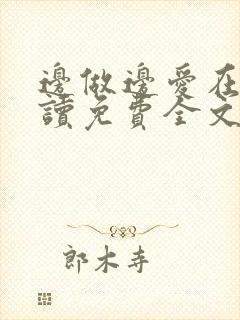 邊做邊愛在
讀免費全文
郎木寺